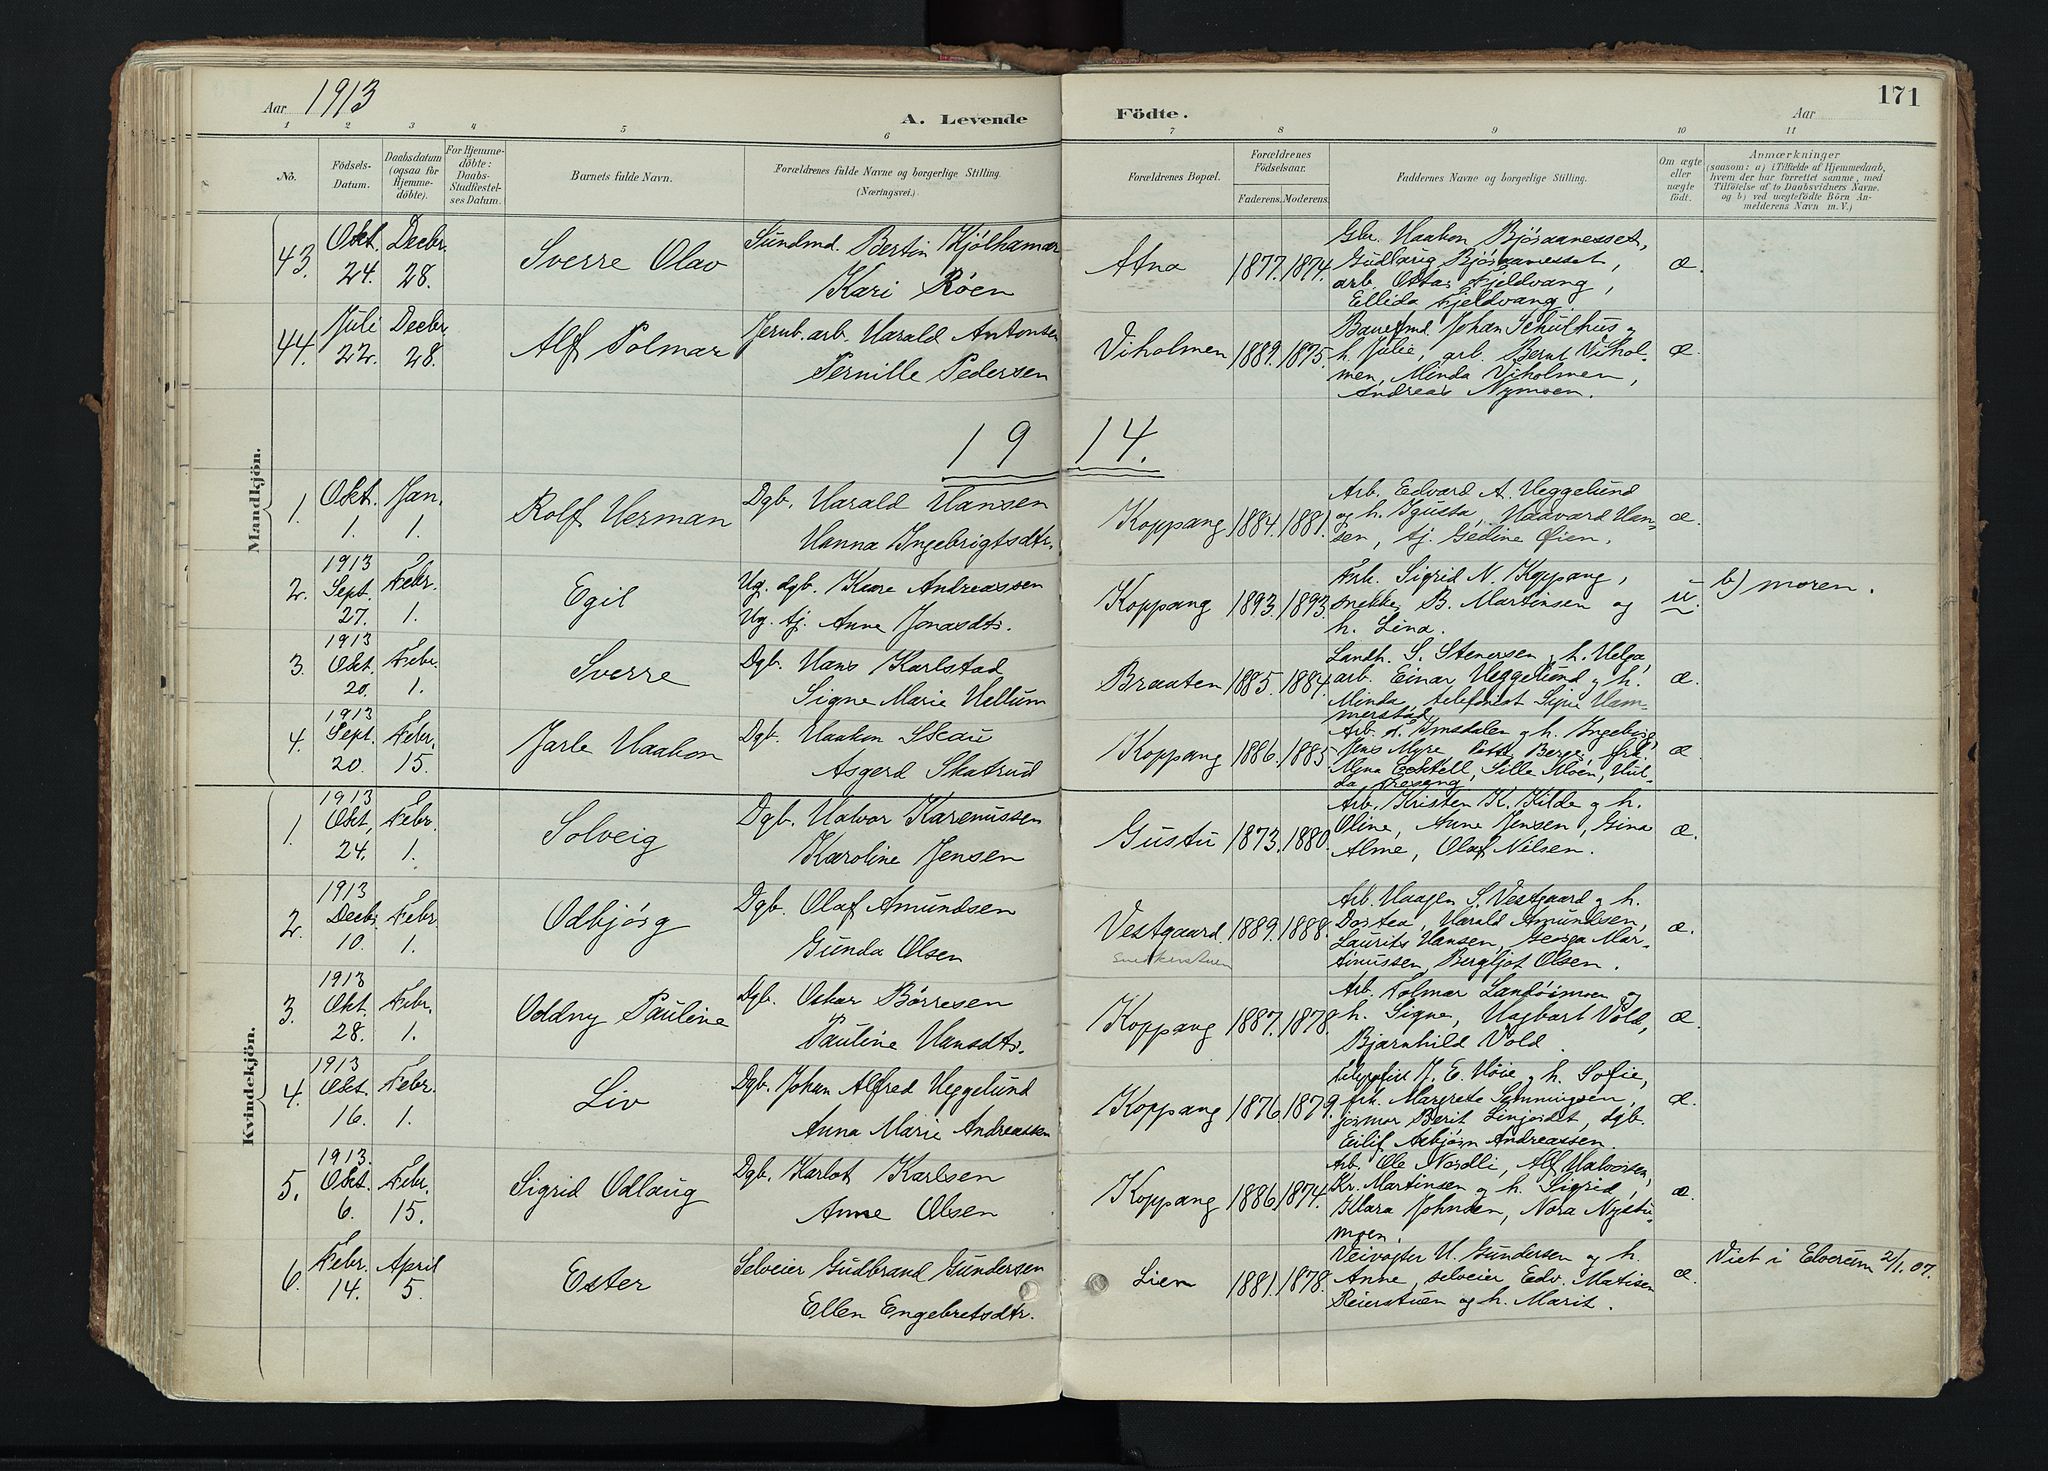 Aar 1913
A. Levende Födte.
Aar
171
1 2 3 4 5 6 7 8 9 10 11
No.
Födsels-
Datum.
Daabsdatum
(ogsaa for
Hjemme-
döbte).
For Hjemme-
döbte:
Daabs-
Stadfæstel-
ses Datum.
Barnets fulde Navn.
Forældrenes fulde Navne og borgerlige Stilling.
(Næringsvei.)
Forældrenes Bopæl.
Forældrenes
Födselsaar.
Faderens. Moderens.
Faddernes Navne og borgerlige Stilling.
Om ægte
eller
uægte
födt.
Anmærkninger
(saasom: a) i Tilfælde af Hjemmedaab,
hvem der har forrettet samme, med
Tilföielse af to Daabsvidners Navne.
og b) ved uægtefödte Börn An-
melderens Navn m. V.)
Mandkjön.
43. Okt. 24. Decbr. 28. Sverre Olav
Sundmd. Bertin Kjølhamar
Kari Røen
Atna 1877. 1874.
Gbr. Haakon Bjøraanesset,
Gudbrig Bjøraanesset,
arb. Ottar Fjeldvang,
Ellida Fjeldvang
æ.
44. Juli 22. Decbr. 28. Alf Polmar
Jernb. arb. Harald Antonsen
Pernille Pedersen
Viholmen 1889. 1875.
Banefmd. Johan Schulhus og
h. Julie, arb. Bernt Vihol-
men, Minda Viholmen,
Andreas Nymoen.
æ.
1914.
1. Okt. 1. Jan. 1. Rolf Herman
Dgb. Harald Hansen
Hanna Ingebrigtsdtr.
Koppang 1884. 1881.
Arb. Edvard A. Heggelund
og h. Igusta, Haavard Han-
sen, tj. Gedine Øien.
æ.
2. 1913 Sept. 27. Febr. 1. Egil
Ug. dgb. Kaare Andreassen
Ug. tj. Anne Jonasdtr.
Koppang 1893. 1893.
Frk. Sigrid N. Koppang,
snekker B. Martinsen og
h. Lina.
u.
b) moren.
3. 1913 Okt. 20. Febr. 1. Sverre
Dgb. Hans Karlstad
Signe Marie Hellum
Braaten 1885. 1884.
Landh. S. Stenersen og h. Helga,
arb. Einar Heggelund og h.
Minda, telefonist Signe Ham-
merstad
æ.
4. 1913 Sept. 20. Febr. 15. Jarle Haakon
Dgb. Haakon Skau
Asgerd Skatrud
Koppang 1886. 1885
Arb. Imsdalen og h. Ingeborg,
Jens Myre, Berge,
Sille Moen, Hul-
da
æ
Kvindekjön.
1. 1913 Okt. 24. Febr. 1. Solveig
Dgb. Halvor Karenussen
Karoline Jensen
Gustu 1873. 1880.
Arb. Kristen K. Kilde og h.
Oline, Anne Jensen, Gina
Alme, Olaf Nilsen.
æ.
2. 1913 Decbr. 10. Febr. 1. Odbjørg
Dgb. Olaf Amundsen
Gunda Olsen
Vestgaard 1889. 1888.
Snekkerstuen
Arb. Haagen S. Vestgaard og h.
Dortea, Harald Amundsen,
Laurits Hansen, Georga Mar-
tinussen, Bergljot Olsen.
æ.
3. 1913 Okt. 28. Febr. 1. Oddny Pauline
Dgb. Oskar Børresen
Pauline Hansdtr.
Koppang 1887. 1878.
Arb. Folmar Landøimoen og
h. Signe, Hagbart Vold,
Bjarnhild Vold.
æ.
4. 1913 Okt. 16. Febr. 1. Liv
Dgb. Johan Alfred Heggelund
Anna Marie Andreassen
Koppang 1876. 1879.
telegrafist J. E. Høie og h. Sofie,
frk. Margrete Semmingsen,
jormor Berit Linjordet, dgb.
Eilif Asbjørn Andreassen.
æ.
5. 1913. Okt. 6. Febr. 15. Sigrid Odlaug
Dgb. Karlot Karlsen
Anne Olsen
Koppang 1886. 1874.
Arb. Ole Nordli, Alf Halvorsen,
Kr. Martinsen og h. Sigrid,
Klara Johnsen, Nora Nystu-
moen.
æ.
6. Febr. 14. April 5. Ester
Selveier Gudbrand Gundersen
Ellen Engebretsdtr.
Lien 1881. 1878.
Veivogter H. Gundersen og h.
Anne, selveier Edv. Matisen
Reierstuen og h. Marit.
æ.
Viet i Elverum 2/1. 07.